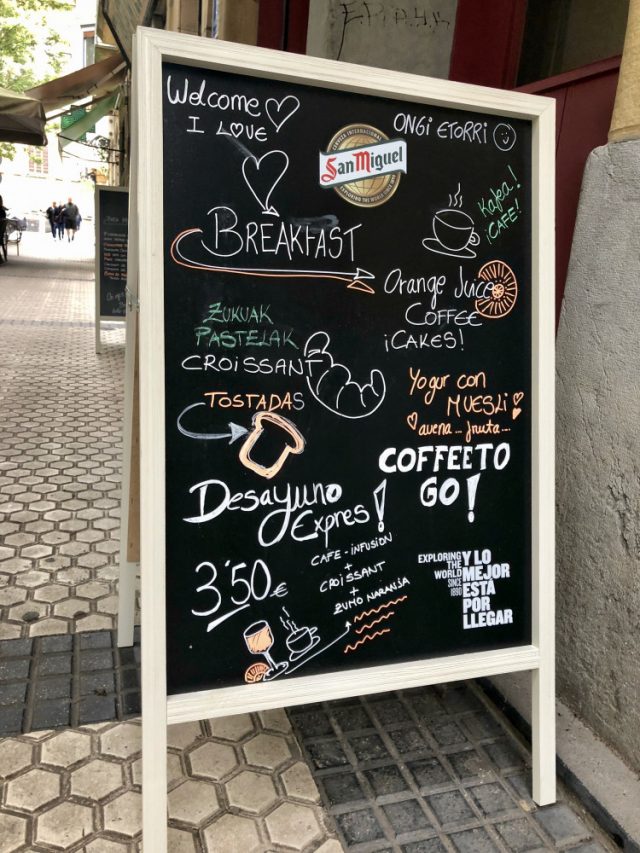 Welcome
I LOVE
ONGI ETORRI
CERVEZA INTERNACIONAL
San Miguel
EXPLORING THE WORLD SINCE 1890
BREAKFAST
Kafea!
¡CAFE!
Orange Juice
COFFEE
¡CAKES!
ZUKUAK
PASTELAK
CROISSANT
TOSTADAS
Yogur con
MUESLI
avena... fruta...
COFFEE TO
GO!
Desayuno
Expres!
3'50€
CAFE-INFUSION
+
CROISSANT
+
ZUMO NARANJA
EXPLORING
THE
WORLD
SINCE
1890
Y LO
MEJOR
ESTÁ
POR
LLEGAR